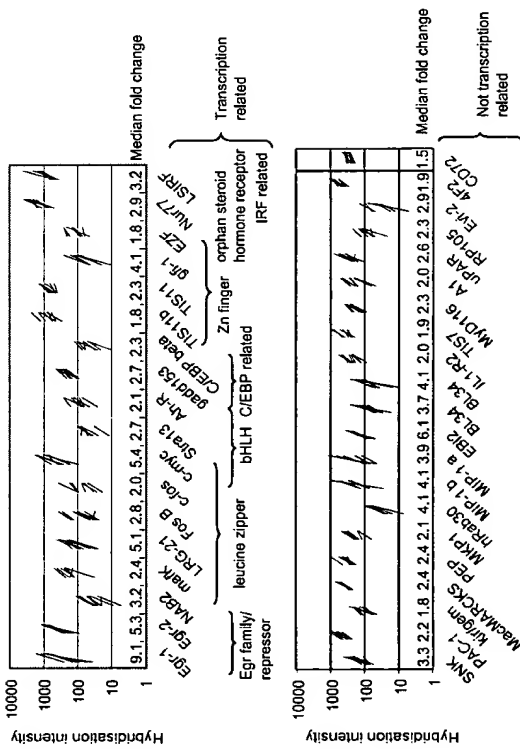 Hybridisation intensity
10000
1000
100
10
1
9.1 5.3 3.2 2.4 5.1 2.8 2.0 5.4 2.7 2.1 2.7 2.3 1.8 2.3 4.1 1.8 2.9 3.2 Median fold change
Egr-1 Egr-2 NAB2 mafK LRG-21 Fos B c-fos c-myc Stra13 Ah-R gadd153 C/EBP beta TIS11b TIS11 gfi-1 EZF Nur77 LSIRF
Egr family/
repressor
leucine zipper
bHLH
C/EBP related
Zn finger
orphan steroid
hormone receptor
IRF related
Transcription
related
Hybridisation intensity
10000
1000
100
10
1
3.3 2.2 1.8 2.4 2.4 2.1 4.1 4.1 3.9 6.1 3.7 4.1 2.0 1.9 2.3 2.0 2.6 2.3 2.9 1.9 1.5 Median fold change
SNK PAC-1 kir/gem MacMARCKS PEP MKP1 hRab30 MIP-1 b MIP-1 a EBI2 BL34 BL34 IL1-R2 TIS7 MyD116 A1 uPAR RP105 Evi-2 4F2 CD72
Not transcription
related